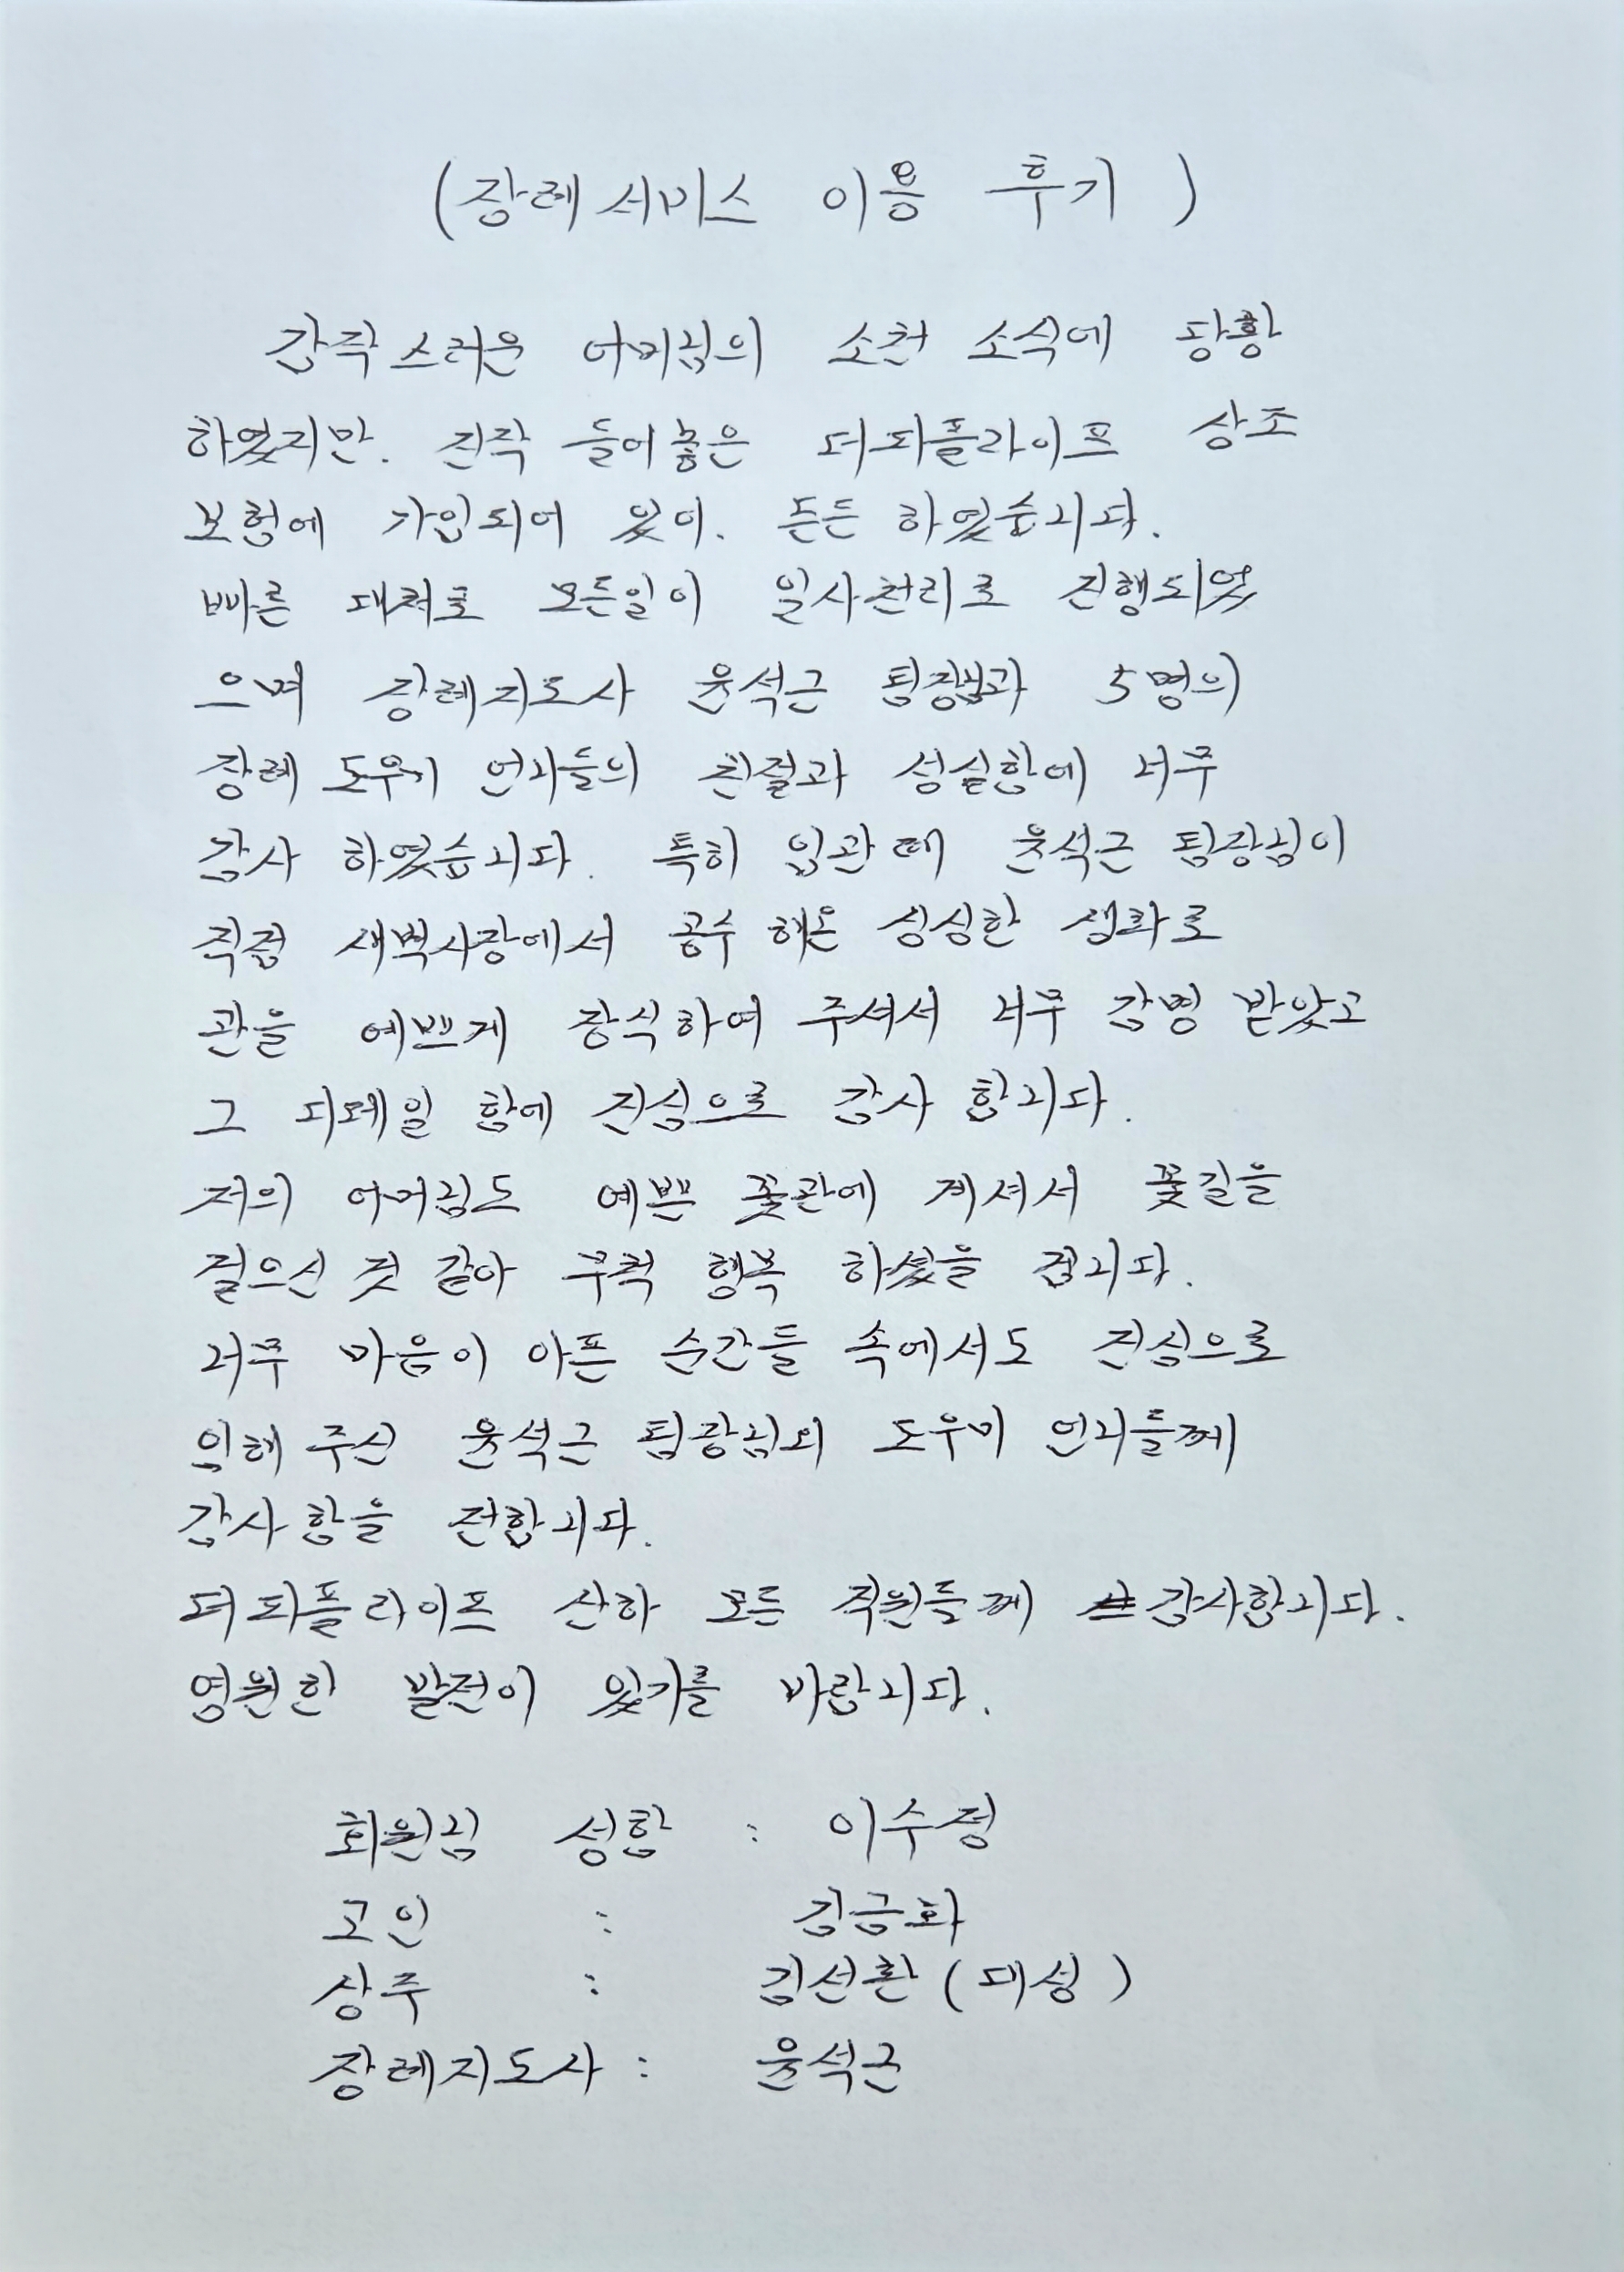 (장례서비스 이용 후기)
갑작스러운 어머님의 소천 소식에 당황
하였지만. 진작 들어놓은 더피플라이프 상조
보험에 가입되어 있어. 든든 하였습니다.
빠른 대처로 모든일이 일사천리로 진행되었
으며 장례지도사 윤석근 팀장님과 5명의
장례 도우미 언니들의 친절과 성실함에 너무
감사 하였습니다. 특히 입관 때 윤석근 팀장님이
직접 새벽시장에서 공수 해온 싱싱한 생화로
관을 예쁘게 장식하여 주셔서 너무 감명 받았고
그 디테일 함에 진심으로 감사 합니다.
저의 어머님도 예쁜 꽃관에 계셔서 꽃길을
걸으신 것 같아 무척 행복 하셨을 겁니다.
너무 마음이 아픈 순간들 속에서도 진심으로
위해 주신 윤석근 팀장님외 도우미 언니들께
감사함을 전합니다.
더피플라이프 산하 모든 직원들께 감사합니다.
영원한 발전이 있기를 바랍니다.
회원님 성함 : 이수정
고인 : 김금화
상주 : 김선환 (대성)
장례지도사 : 윤석근